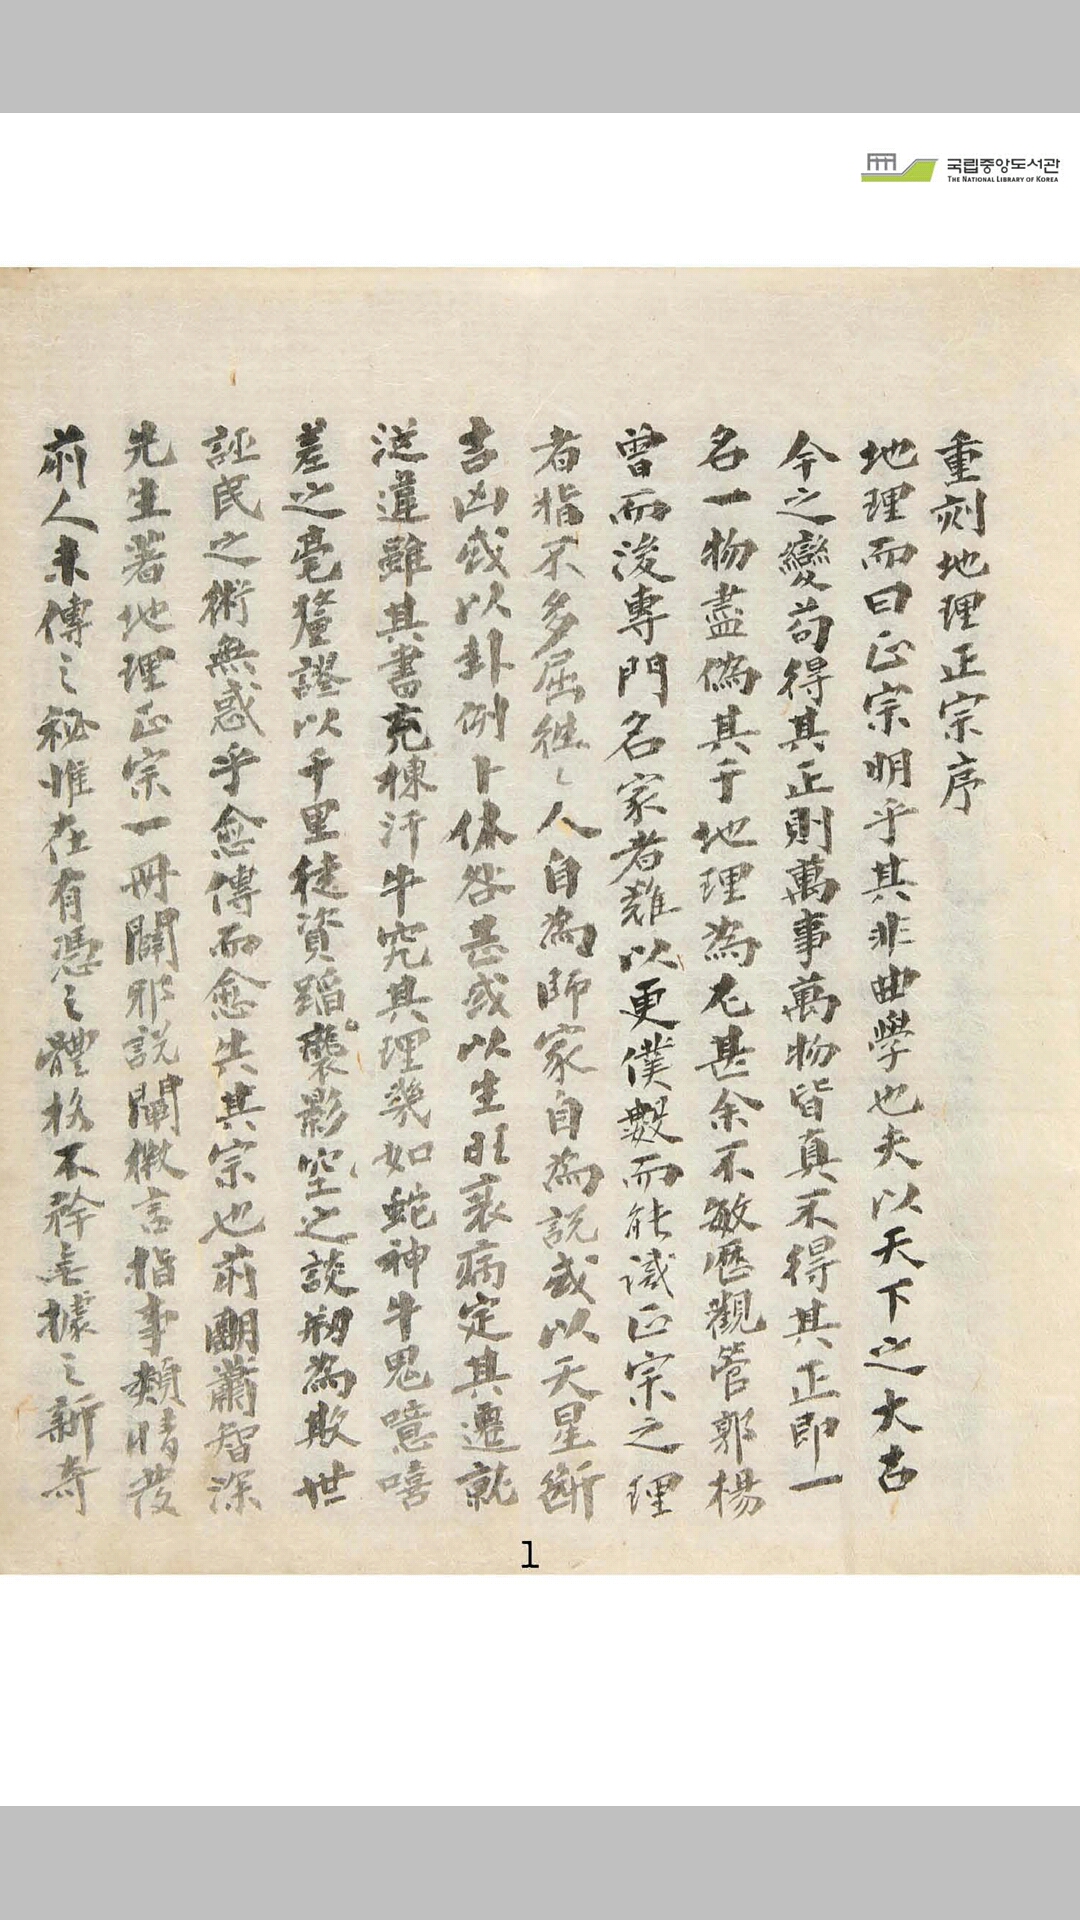 국립중앙도서관
THE NATIONAL LIBRARY OF KOREA
重刻地理正宗序
地理而曰正宗明乎其非曲學也夫以天下之大古
今之變苟得其正則萬事萬物皆真不得其正即一
名一物盡偽其于地理為尤甚余不敏歷觀管郭楊
曾而後專門名家者難以更僕數而能識正宗之理
者指不多屈徃〻人自為師家自為說或以天星斷
吉凶或以卦例卜休咎甚或以生旺衰病定其遷就
從違雖其書充棟汗牛究其理幾如蛇神牛鬼噫嘻
差之毫釐謬以千里徒資蹈襲影空之談剏為欺世
誣民之術無惑乎愈傳而愈失其宗也前關蕭智深
先生著地理正宗一冊闢邪說闡微言指事類情發
前人未傳之祕惟在有憑之體格不矜無據之新奇
1